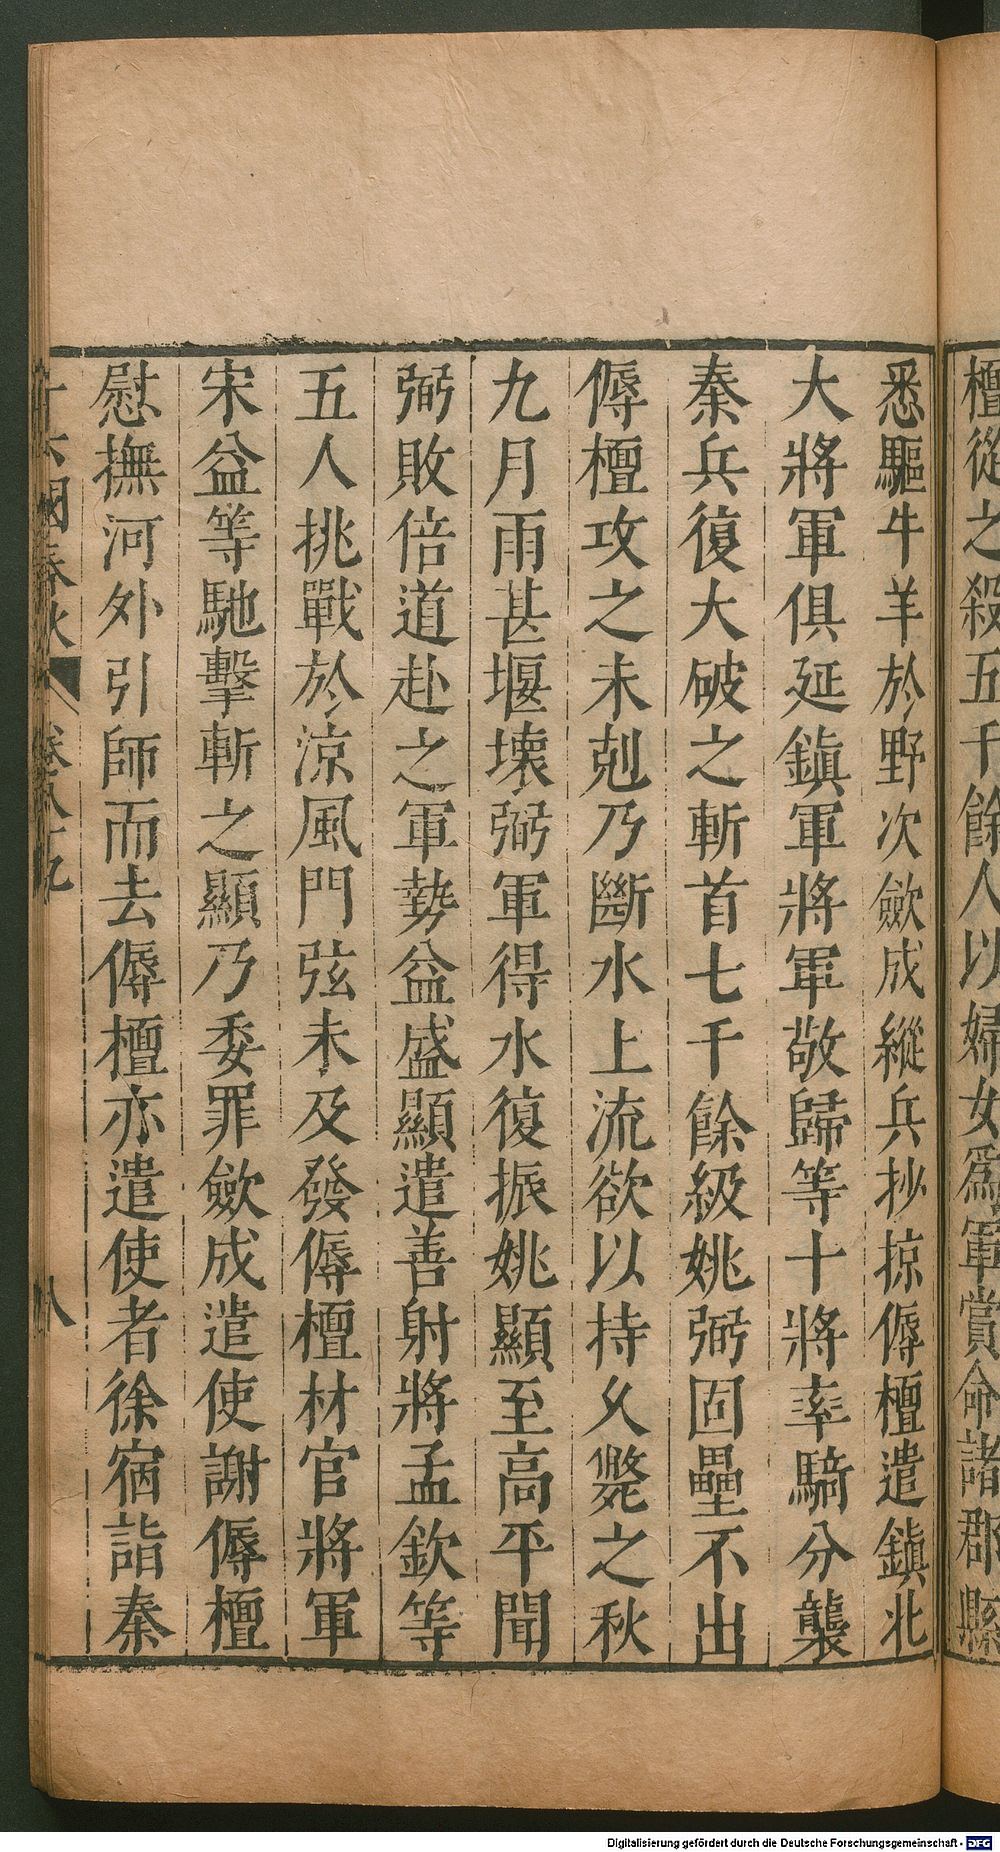 檀從之殺五千餘人以婦女爲軍賞命諸郡縣
悉驅牛羊於野次斂成縱兵抄掠傉檀遣鎭北
大將軍俱延鎭軍將軍敬歸等十將率騎分襲
秦兵復大破之斬首七千餘級姚弼固壘不出
傉檀攻之未剋乃斷水上流欲以持久斃之秋
九月雨甚堰壞弼軍得水復振姚顯至高平聞
弼敗倍道赴之軍勢益盛顯遣善射將孟欽等
五人挑戰於涼風門弦未及發傉檀材官將軍
宋益等馳擊斬之顯乃委罪斂成遣使謝傉檀
慰撫河外引師而去傉檀亦遣使者徐宿詣秦
十六國春秋 卷八十九 八
Digitalisierung gefördert durch die Deutsche Forschungsgemeinschaft - DFG